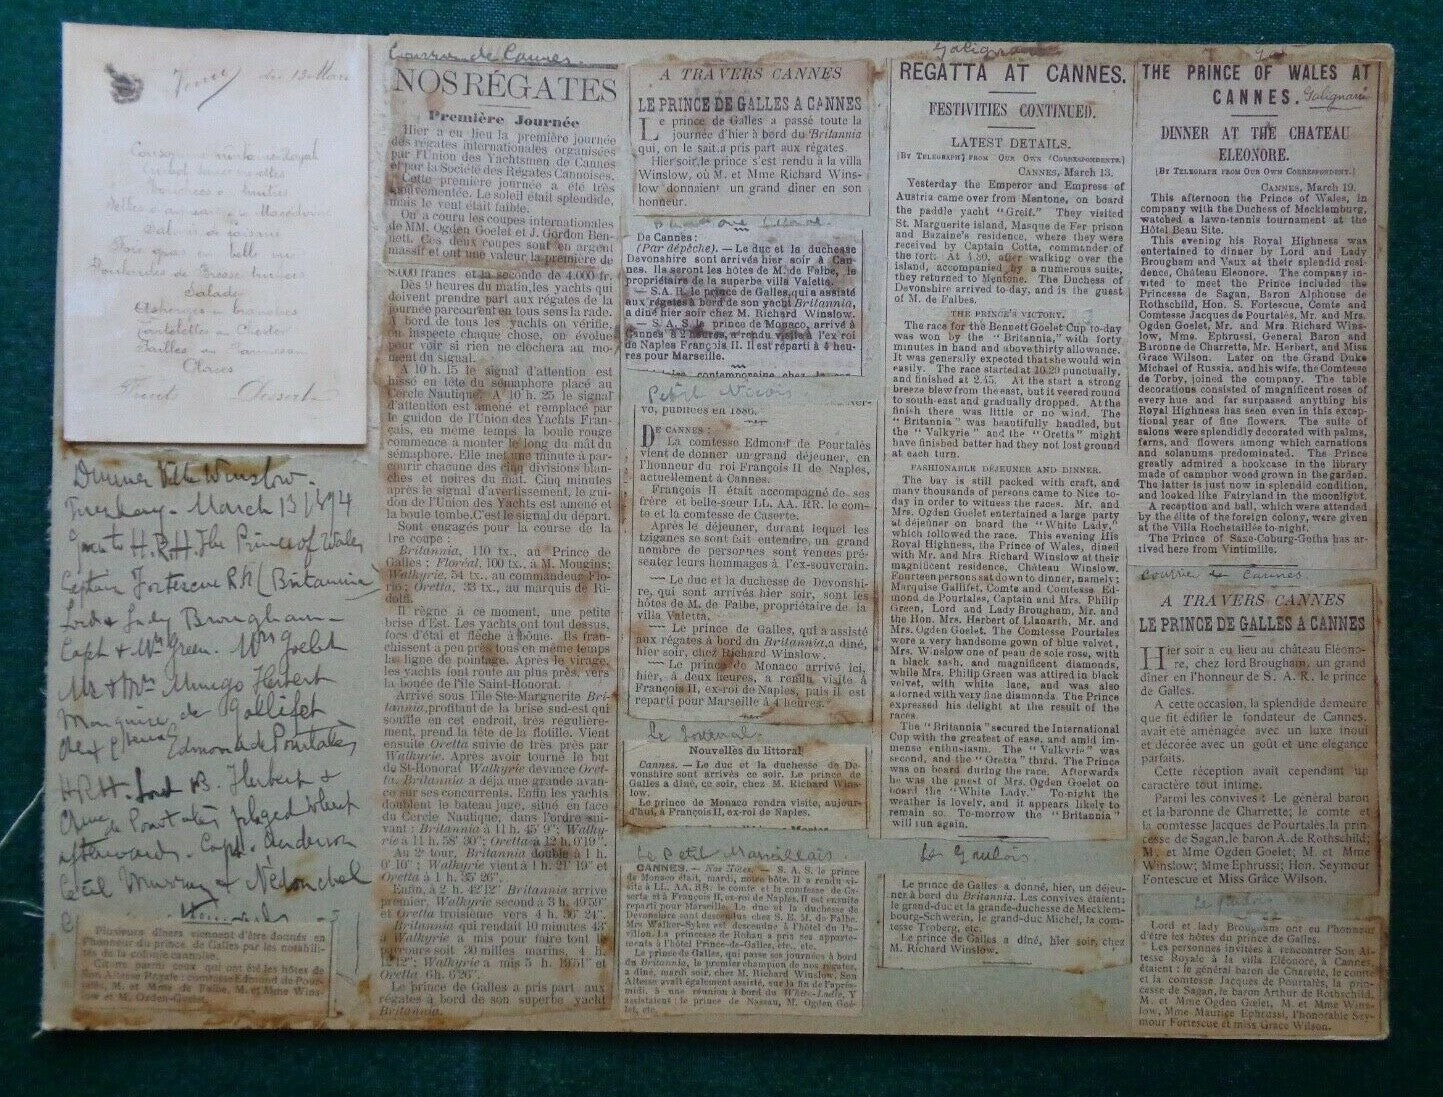 du 13 Mars
Salade
Asperges en branches
Glaces
Fruits Desserts
Dinner Villa Winslow.
Tuesday - March 13/1894
H.R.H. The Prince of Wales
Captain Fortescue RN (Britannia)
Lord & Lady Brougham -
Capt & Mrs Green. Mrs Goelet
Mr & Mrs Mungo Herbert
Marquise de Gallifet
Edmond de Pourtalès
H.R.H. Lord B Herbert &
de Pourtalès played whist
afterwards. Capt. Anderson
Cecil Murray &
Plusieurs dîners viennent d'être donnés en
l'honneur du prince de Galles par les notabili-
tés de la colonie cannoise.
Citons parmi ceux qui ont été les hôtes de
Son Altesse Royale : comtesse Edmond de Pour-
talès, M. et Mme de Falbe, M. et Mme Wins-
low et M. Ogden-Goelet.
Courrier de Cannes.
NOS RÉGATES
Première Journée
Hier a eu lieu la première journée
des régates internationales organisées
par l'Union des Yachtsmen de Cannes
et par la Société des Régates Cannoises.
Cette première journée a été très
mouvementée. Le soleil était splendide,
mais le vent était faible.
On a couru les coupes internationales
de MM. Ogden Goelet et J. Gordon Ben-
nett. Ces deux coupes sont en argent
massif et ont une valeur la première de
8.000 francs et la seconde de 4.000 fr.
Dès 9 heures du matin, les yachts qui
doivent prendre part aux régates de la
journée parcourent en tous sens la rade.
A bord de tous les yachts on vérifie,
on inspecte chaque chose, on évolue
pour voir si rien ne clochera au mo-
ment du signal.
A 10 h. 15 le signal d'attention est
hissé en tête du sémaphore placé au
Cercle Nautique. A 10 h. 25 le signal
d'attention est amené et remplacé par
le guidon de l'Union des Yachts Fran-
çais, en même temps la boule rouge
commence à monter le long du mât du
sémaphore. Elle met une minute à par-
courir chacune des cinq divisions blan-
ches et noires du mât. Cinq minutes
après le signal d'avertissement, le gui-
don de l'Union des Yachts est amené et
la boule tombe. C'est le signal du départ.
Sont engagés pour la course de la
1re coupe :
Britannia, 110 tx., au Prince de
Galles ; Floréal, 100 tx., à M. Mougins;
Walkyrie. 54 tx., au commandeur Flo-
rio; Oretta, 33 tx., au marquis de Ri-
dolfi.
Il règne à ce moment, une petite
brise d'Est. Les yachts ont tout dessus,
focs d'étai et flèche à bôme. Ils fran-
chissent a peu près tous en même temps
la ligne de pointage. Après le virage,
les yachts font route au plus près, vers
la bouée de l'Ile Saint-Honorat.
Arrivé sous l'Ile Ste-Marguerite Bri-
tannia, profitant de la brise sud-est qui
souffle en cet endroit, très régulière-
ment, prend la tête de la flotille. Vient
ensuite Oretta suivie de très près par
Walkyrie. Après avoir tourné le but
de St-Honorat Walkyrie devance Oret-
ta. Britannia a déjà une grande avan-
ce sur ses concurrents. Enfin les yachts
doublent le bateau juge, situé en face
du Cercle Nautique, dans l'ordre sui-
vant : Britannia à 11 h. 45' 9"; Walky-
rie à 11 h. 58' 30"; Oretta à 12 h. 0'19"
Au 2e tour, Britannia double à 1 h.
0' 10" ; Walkyrie vient à 1 h. 21' 9" et
Oretta à 1 h. 35' 26".
Enfin, à 2 h. 42'12" Britannia arrive
premier, Walkyrie second à 3 h. 49'59"
et Oretta troisième vers 4 h. 36' 24".
Britannia qui rendait 10 minutes 43'
à Walkyrie a mis pour faire tout le
parcours soit 50 milles marins, 4 h.
12'12"; Walkyrie a mis 5 h. 19'51" et
Oretta 6h. 6'26".
Le prince de Galles a pris part aux
régates à bord de son superbe yacht
Britannia.
A TRAVERS CANNES
LE PRINCE DE GALLES A CANNES
Le prince de Galles a passé toute la
journée d'hier à bord du Britannia
qui, on le sait, a pris part aux régates.
Hier soir, le prince s'est rendu à la villa
Winslow, où M. et Mme Richard Wins-
low donnaient un grand dîner en son
honneur.
De Cannes :
(Par dépêche). — Le duc et la duchesse
Devonshire sont arrivés hier soir à Can-
nes. Ils seront les hôtes de M. de Falbe, le
propriétaire de la superbe villa Valetta.
— S. A. R. le prince de Galles, qui a assisté
aux régates à bord de son yacht Britannia,
a dîné hier soir chez M. Richard Winslow.
— S. A. S. le prince de Monaco, arrivé à
Cannes à 2 heures, a rendu visite à l'ex roi
de Naples François II. Il est réparti à 4 heu-
res pour Marseille.
Petit Niçois.
vo, publiées en 1886.
DE CANNES :
La comtesse Edmond de Pourtalès
vient de donner un grand déjeuner, en
l'honneur du roi François II de Naples,
actuellement à Cannes.
François II était accompagné de ses
frère et belle-sœur LL. AA. RR. le com-
te et la comtesse de Caserte.
Après le déjeuner, durant lequel les
tziganes se sont fait entendre, un grand
nombre de personnes sont venues pré-
senter leurs hommages à l'ex-souverain.
— Le duc et la duchesse de Devonshi-
re, qui sont arrivés hier soir, sont les
hôtes de M. de Falbe, propriétaire de la
villa Valetta.
— Le prince de Galles, qui a assisté
aux régates à bord du Britannia, a dîné,
hier soir, chez Richard Winslow.
— Le prince de Monaco arrivé ici,
hier, à deux heures, a rendu visite à
François II, ex-roi de Naples, puis il est
reparti pour Marseille à 4 heures.
Le Journal
Nouvelles du littoral
Cannes. — Le duc et la duchesse de De-
vonshire sont arrivés ce soir. Le prince de
Galles a dîné, ce soir, chez M. Richard Wins-
low.
Le prince de Monaco rendra visite, aujour-
d'hui, à François II, ex-roi de Naples.
Le Petit Marseillais
CANNES. — Nos Fêtes. — S. A. S. le prince
de Monaco était, mardi, notre hôte. Il a rendu vi-
site à LL. AA. RR. le comte et la comtesse de Ca-
serte et à François II, ex-roi de Naples. Il est ensuite
reparti pour Marseille. Le duc et la duchesse de
Devonshire sont descendus chez S. E. M. de Falbe.
Mrs Walker-Sykes est descendue à l'hôtel du Pa-
villon. La princesse de Rohan a pris ses apparte-
ments à l'hôtel Prince-de-Galles, etc., etc.
Le prince de Galles, qui passe ses journées à bord
du Britannia, le premier champion de nos régates,
a dîné, mardi soir, chez M. Richard Winslow. Son
Altesse avait également assisté, sur la fin de l'après-
midi, à une réunion à bord du White-Ladie. Y
assistaient : le prince de Nassau, M. Ogden Goë-
let, etc.
Galignani
REGATTA AT CANNES.
FESTIVITIES CONTINUED.
LATEST DETAILS.
[BY TELEGRAPH FROM OUR OWN CORRESPONDENTS.]
CANNES, March 13.
Yesterday the Emperor and Empress of
Austria came over from Mentone, on board
the paddle yacht "Greif." They visited
St. Marguerite island, Masque de Fer prison
and Bazaine's residence, where they were
received by Captain Cotte, commander of
the fort. At 4.30, after walking over the
island, accompanied by a numerous suite,
they returned to Mentone. The Duchess of
Devonshire arrived to-day, and is the guest
of M. de Falbes.
THE PRINCE'S VICTORY.
The race for the Bennett Goelet Cup to-day
was won by the "Britannia," with forty
minutes in hand and above thirty allowance.
It was generally expected that she would win
easily. The race started at 10.29 punctually,
and finished at 2.45. At the start a strong
breeze blew from the east, but it veered round
to south-east and gradually dropped. At the
finish there was little or no wind. The
"Britannia" was beautifully handled, but
the "Valkyrie" and the "Oretta" might
have finished better had they not lost ground
at each turn.
FASHIONABLE DEJEUNER AND DINNER.
The bay is still packed with craft, and
many thousands of persons came to Nice to-
day in order to witness the races. Mr. and
Mrs. Ogden Goelet entertained a large party
at déjeuner on board the "White Lady,"
and there was dancing later. This evening His
Royal Highness, the Prince of Wales, dined
with Mr. and Mrs. Richard Winslow at their
magnificent residence, Château Winslow.
Fourteen persons sat down to dinner, namely;
Marquise Gallifet, Comte and Comtesse Ed-
mond de Pourtales, Captain and Mrs. Philip
Green, Lord and Lady Brougham, Mr. and
the Hon. Mrs. Herbert of Llanarth, Mr. and
Mrs. Ogden Goelet. The Comtesse Pourtales
wore a very handsome gown of blue velvet,
Mrs. Winslow one of peau de soie rose, with
a black sash, and magnificent diamonds,
while Mrs. Philip Green was attired in black
velvet, with white lace, and was also
adorned with very fine diamonds. The Prince
expressed his delight at the result of the
races.
The "Britannia" secured the International
Cup with the greatest of ease, and amid im-
mense enthusiasm. The "Valkyrie" was
second, and the "Oretta" third. The Prince
was on board during the race. Afterwards
he was the guest of Mrs. Ogden Goelet on
board the "White Lady." To-night the
weather is lovely, and it appears likely to
remain so. To-morrow the "Britannia"
will run again.
Le Gaulois
Le prince de Galles a donné, hier, un déjeu-
ner à bord du Britannia. Les convives étaient;
le grand-duc et la grande-duchesse de Mecklem-
bourg-Schwerin, le grand-duc Michel, la com-
tesse Troberg, etc.
Le prince de Galles a dîné, hier soir, chez
M. Richard Winslow.
THE PRINCE OF WALES AT
CANNES. Galignani
DINNER AT THE CHATEAU
ELEONORE.
[BY TELEGRAPH FROM OUR OWN CORRESPONDENT.]
CANNES, March 19.
This afternoon the Prince of Wales, in
company with the Duchess of Mecklemburg,
watched a lawn-tennis tournament at the
Hôtel Beau Site.
This evening his Royal Highness was
entertained to dinner by Lord and Lady
Brougham and Vaux at their splendid resi-
dence, Château Eleonore. The company in-
vited to meet the Prince included the
Princesse de Sagan, Baron Alphonse de
Rothschild, Hon. S. Fortescue, Comte and
Comtesse Jacques de Pourtalès, Mr. and Mrs.
Ogden Goelet, Mr. and Mrs. Richard Wins-
low, Mme. Ephrussi, General Baron and
Baronne de Charrette, Mr. Herbert, and Miss
Grace Wilson. Later on the Grand Duke
Michael of Russia, and his wife, the Comtesse
de Torby, joined the company. The table
decorations consisted of magnificent roses of
every hue and far surpassed anything his
Royal Highness has seen even in this excep-
tional year of fine flowers. The suite of
salons were splendidly decorated with palms,
ferns, and flowers among which carnations
and solanums predominated. The Prince
greatly admired a bookcase in the library
made of camphor wood grown in the garden.
The latter is just now in splendid condition,
and looked like Fairyland in the moonlight.
A reception and ball, which were attended
by the élite of the foreign colony, were given
at the Villa Rochetaillée to-night.
The Prince of Saxe-Coburg-Gotha has ar-
rived here from Vintimille.
Courrier de Cannes
A TRAVERS CANNES
LE PRINCE DE GALLES A CANNES
Hier soir a eu lieu au château Eléono-
re, chez lord Brougham, un grand
dîner en l'honneur de S. A. R. le prince
de Galles.
A cette occasion, la splendide demeure
que fit édifier le fondateur de Cannes,
avait été aménagée avec un luxe inouï
et décorée avec un goût et une élégance
parfaits.
Cette réception avait cependant un
caractère tout intime.
Parmi les convives : Le général baron
et la baronne de Charrette; le comte et
la comtesse Jacques de Pourtalès, la prin-
cesse de Sagan, le baron A. de Rothschild;
M. et Mme Ogden Goelet; M. et Mme
Winslow; Mme Ephrussi; Hon. Seymour
Fortescue et Miss Grâce Wilson.
Le Gaulois
Lord et lady Brougham ont eu l'honneur
d'être les hôtes du prince de Galles.
Les personnes invitées à rencontrer Son Al-
tesse Royale à la villa Eléonore, à Cannes,
étaient : le général baron de Charette, le comte
et la comtesse Jacques de Pourtalès, la prin-
cesse de Sagan, le baron Arthur de Rothschild,
M. et Mme Ogden Gœlet, M. et Mme Wins-
low, Mme Maurice Ephrussi, l'honorable Sey-
mour Fortescue et miss Grace Wilson.